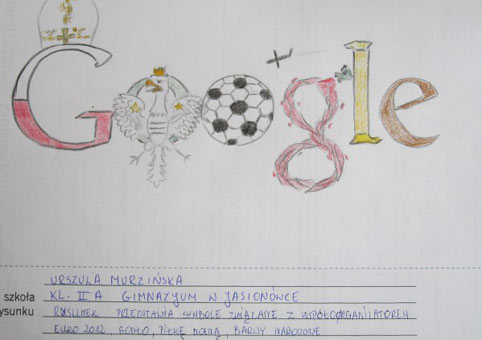 Google
URSZULA MURZIŃSKA
szkoła KL. II A GIMNAZJUM W JASIONÓWCE
ysunku RYSUNEK PRZEDSTAWIA SYMBOLE ZWIĄZANE Z WSPÓŁORGANIZATOREM
EURO 2012, GODŁO, PIŁKĘ NOŻNĄ, BARWY NARODOWE